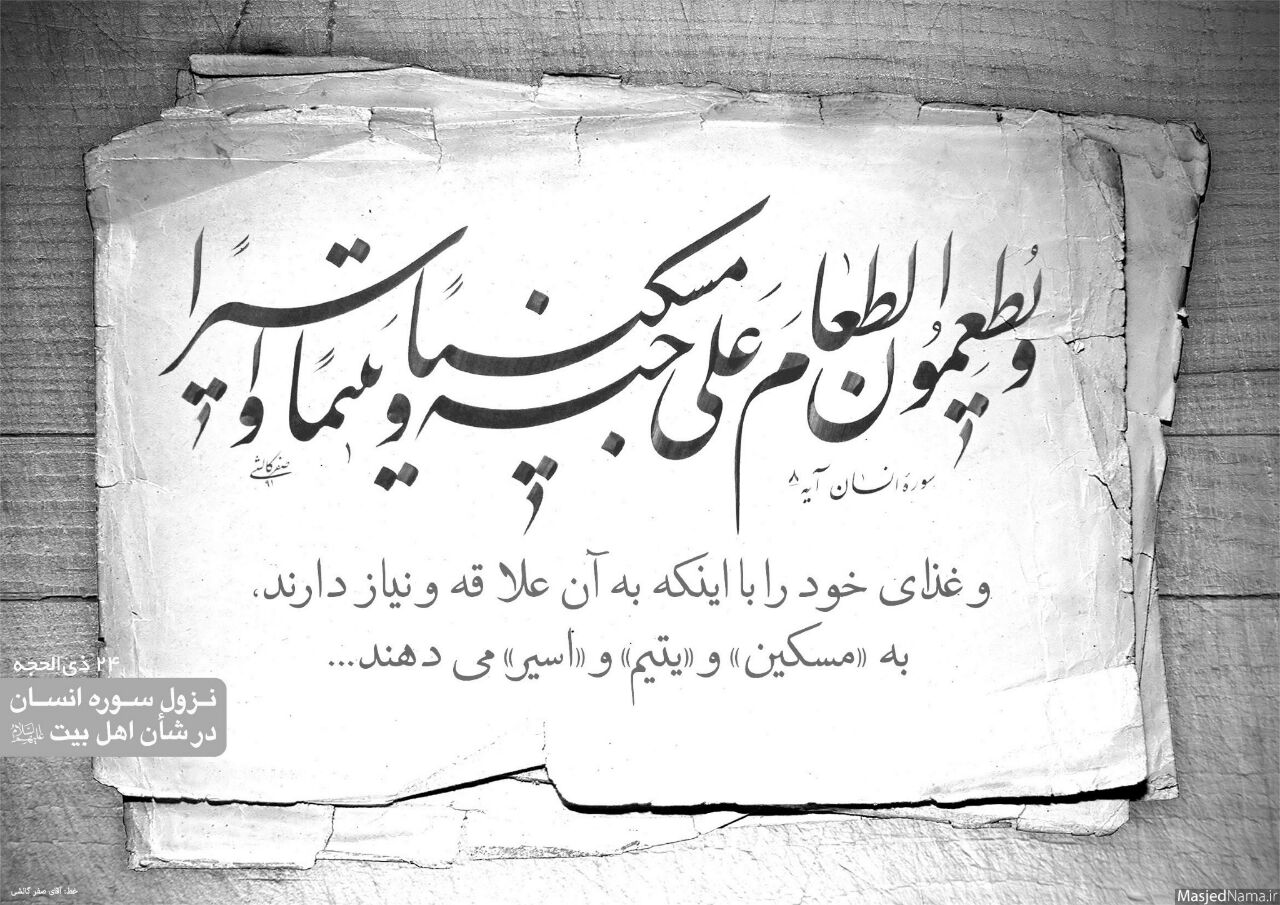 و یُطعِمُونَ الطعامَ علی حبه مسکیناً و یتیماً و اسیراً
سورهٔ انسان آیه ۸
صفر کالشی
۹۱
و غذای خود را با اینکه به آن علاقه و نیاز دارند،
به «مسکین» و «یتیم» و «اسیر» می دهند...
۲۴ ذی‌الحجه
نزول سوره انسان
در شأن اهل بیت علیهم‌السلام
خط: آقای صفر کالشی
MasjedNama.ir